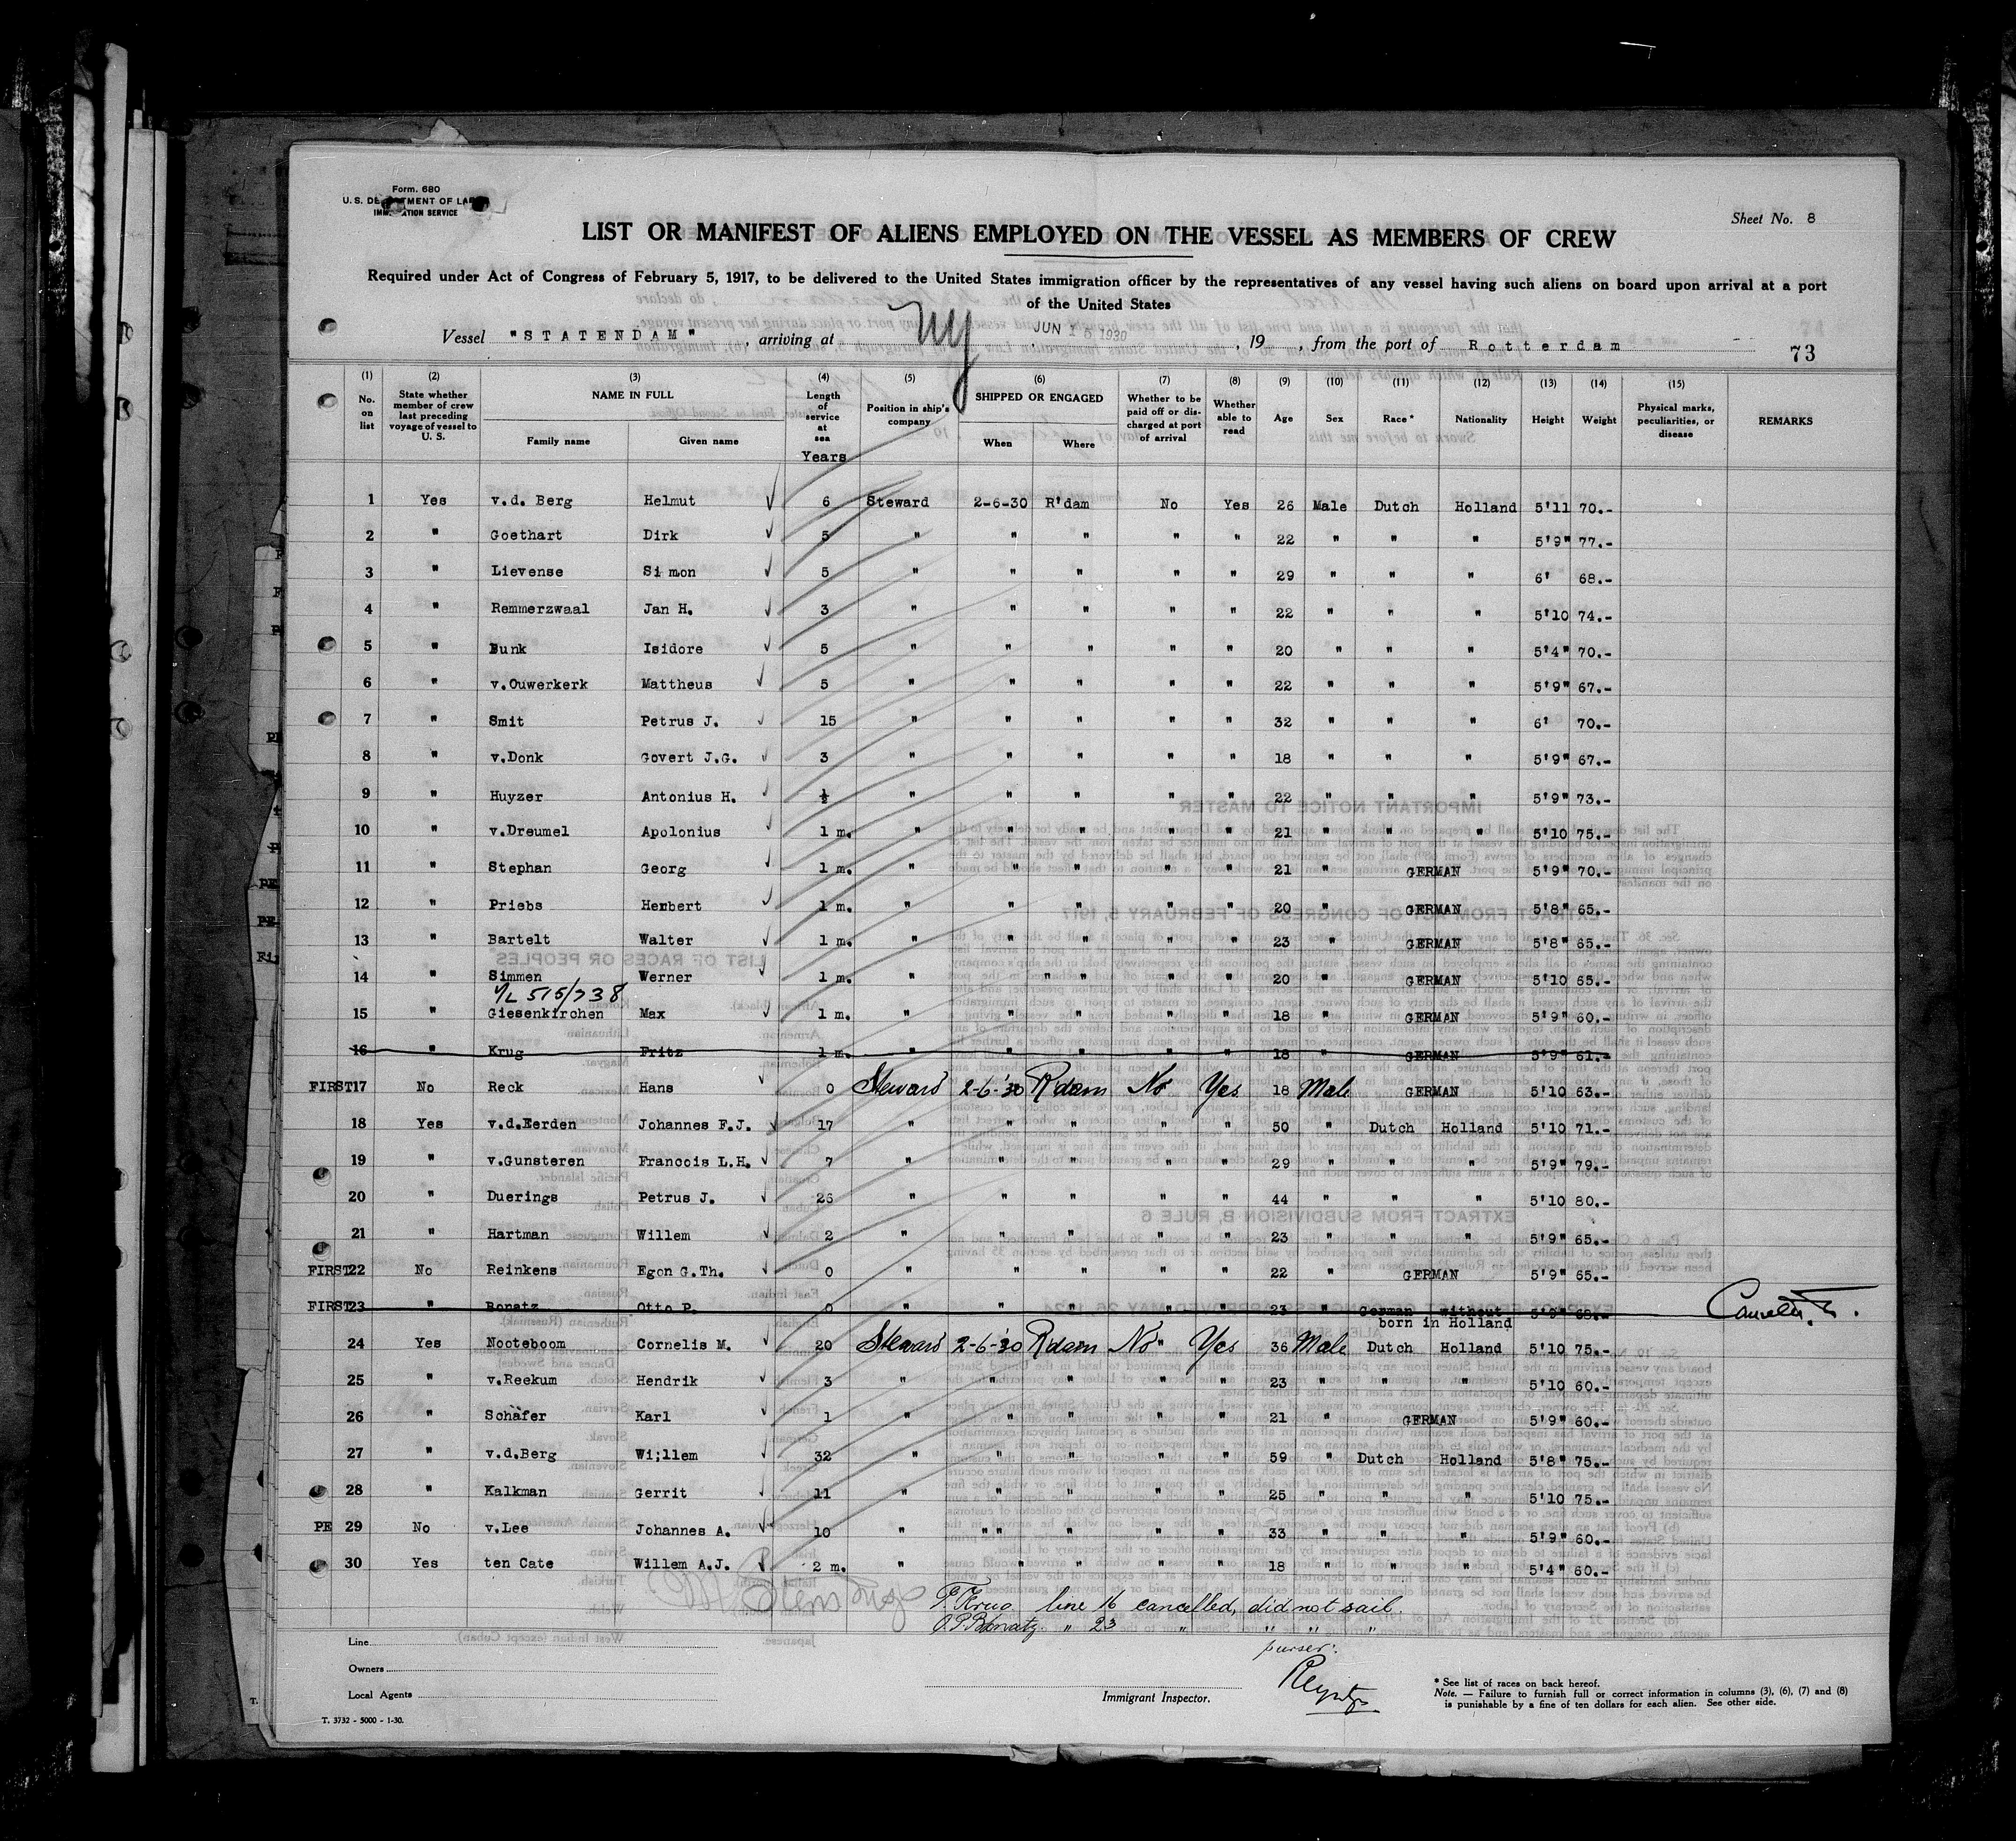 Form. 680
U. S. DEPARTMENT OF LABOR
IMMIGRATION SERVICE
Sheet No. 8
LIST OR MANIFEST OF ALIENS EMPLOYED ON THE VESSEL AS MEMBERS OF CREW
Required under Act of Congress of February 5, 1917, to be delivered to the United States immigration officer by the representatives of any vessel having such aliens on board upon arrival at a port
of the United States
Vessel "STATENDAM", arriving at NY, JUN 1 1930, 19 , from the port of Rotterdam
73
(1) (2) (3) (4) (5) (6) (7) (8) (9) (10) (11) (12) (13) (14) (15)
No. on list State whether member of crew last preceding voyage of vessel to U. S. NAME IN FULL Family name Given name Length of service at sea Years Position in ship's company SHIPPED OR ENGAGED When Where Whether to be paid off or discharged at port of arrival Whether able to read Age Sex Race * Nationality Height Weight Physical marks, peculiarities, or disease REMARKS
1 Yes v.d. Berg Helmut 6 Steward 2-6-30 R'dam No Yes 26 Male Dutch Holland 5'11 70.-
2 " Goethart Dirk 5 " " " " " 22 " " " 5'9" 77.-
3 " Lievense Simon 5 " " " " " 29 " " " 6' 68.-
4 " Remmerzwaal Jan H. 3 " " " " " 22 " " " 5'10 74.-
5 " Bunk Isidore 5 " " " " " 20 " " " 5'4" 70.-
6 " v.Ouwerkerk Mattheus 5 " " " " " 22 " " " 5'9" 67.-
7 " Smit Petrus J. 15 " " " " " 32 " " " 6' 70.-
8 " v.Donk Govert J.G. 3 " " " " " 18 " " " 5'9" 67.-
9 " Huyzer Antonius H. ½ " " " " " 22 " " " 5'9" 73.-
10 " v.Dreumel Apolonius 1 m. " " " " " 21 " " " 5'10 75.-
11 " Stephan Georg 1 m. " " " " " 21 " GERMAN 5'9" 70.-
12 " Priebs Herbert 1 m. " " " " " 20 " GERMAN 5'8" 65.-
13 " Bartelt Walter 1 m. " " " " " 23 " GERMAN 5'8" 65.-
14 " Simmen Werner 1 m. " " " " " 20 " GERMAN 5'10 65.-
515/738
15 " Giesenkirchen Max 1 m. " " " " " 18 " GERMAN 5'9" 60.-
16 " Krug Fritz 1 m. " " " " " 18 " GERMAN 5'9" 61.-
FIRST 17 No Reck Hans 0 Steward 2-6-'30 R'dam No Yes 18 Male GERMAN 5'10 63.-
18 Yes v.d.Eerden Johannes F.J. 17 " " " " " 50 " Dutch Holland 5'10 71.-
19 " v.Gunsteren Francois L.H. 7 " " " " " 29 " " " 5'9" 79.-
20 " Duerings Petrus J. 26 " " " " " 44 " " " 5'10 80.-
21 " Hartman Willem 2 " " " " " 23 " " " 5'9" 65.-
FIRST 22 No Reinkens Egon G.Th. 0 " " " " " 22 " GERMAN 5'9" 65.-
FIRST 23 " Bonatz Otto P. 0 " " " " " 23 " German without 5'9" 68.-
born in Holland
24 Yes Nooteboom Cornelis M. 20 Steward 2-6-'30 R'dam No " Yes 36 Male Dutch Holland 5'10 75.-
25 " v.Reekum Hendrik 3 " " " " " 23 " " " 5'10 60.-
26 " Schäfer Karl 1 " " " " " 21 " GERMAN 5'9" 60.-
27 " v.d.Berg Wi;llem 32 " " " " " 59 " Dutch Holland 5'8" 75.-
28 " Kalkman Gerrit 11 " " " " " 25 " " " 5'10 75.-
PE 29 No v.Lee Johannes A. 10 " " " " " 33 " " " 5'9" 60.-
30 Yes ten Cate Willem A.J. 2 m. " " " " " 18 " " " 5'4" 60.-
F. Krug line 16 cancelled, did not sail.
O.P. Bonatz " 23 " " " "
purser:
Line
Owners
Local Agents
Immigrant Inspector.
* See list of races on back hereof.
Note. — Failure to furnish full or correct information in columns (3), (6), (7) and (8)
is punishable by a fine of ten dollars for each alien. See other side.
T. 3732 - 5000 - 1-30.